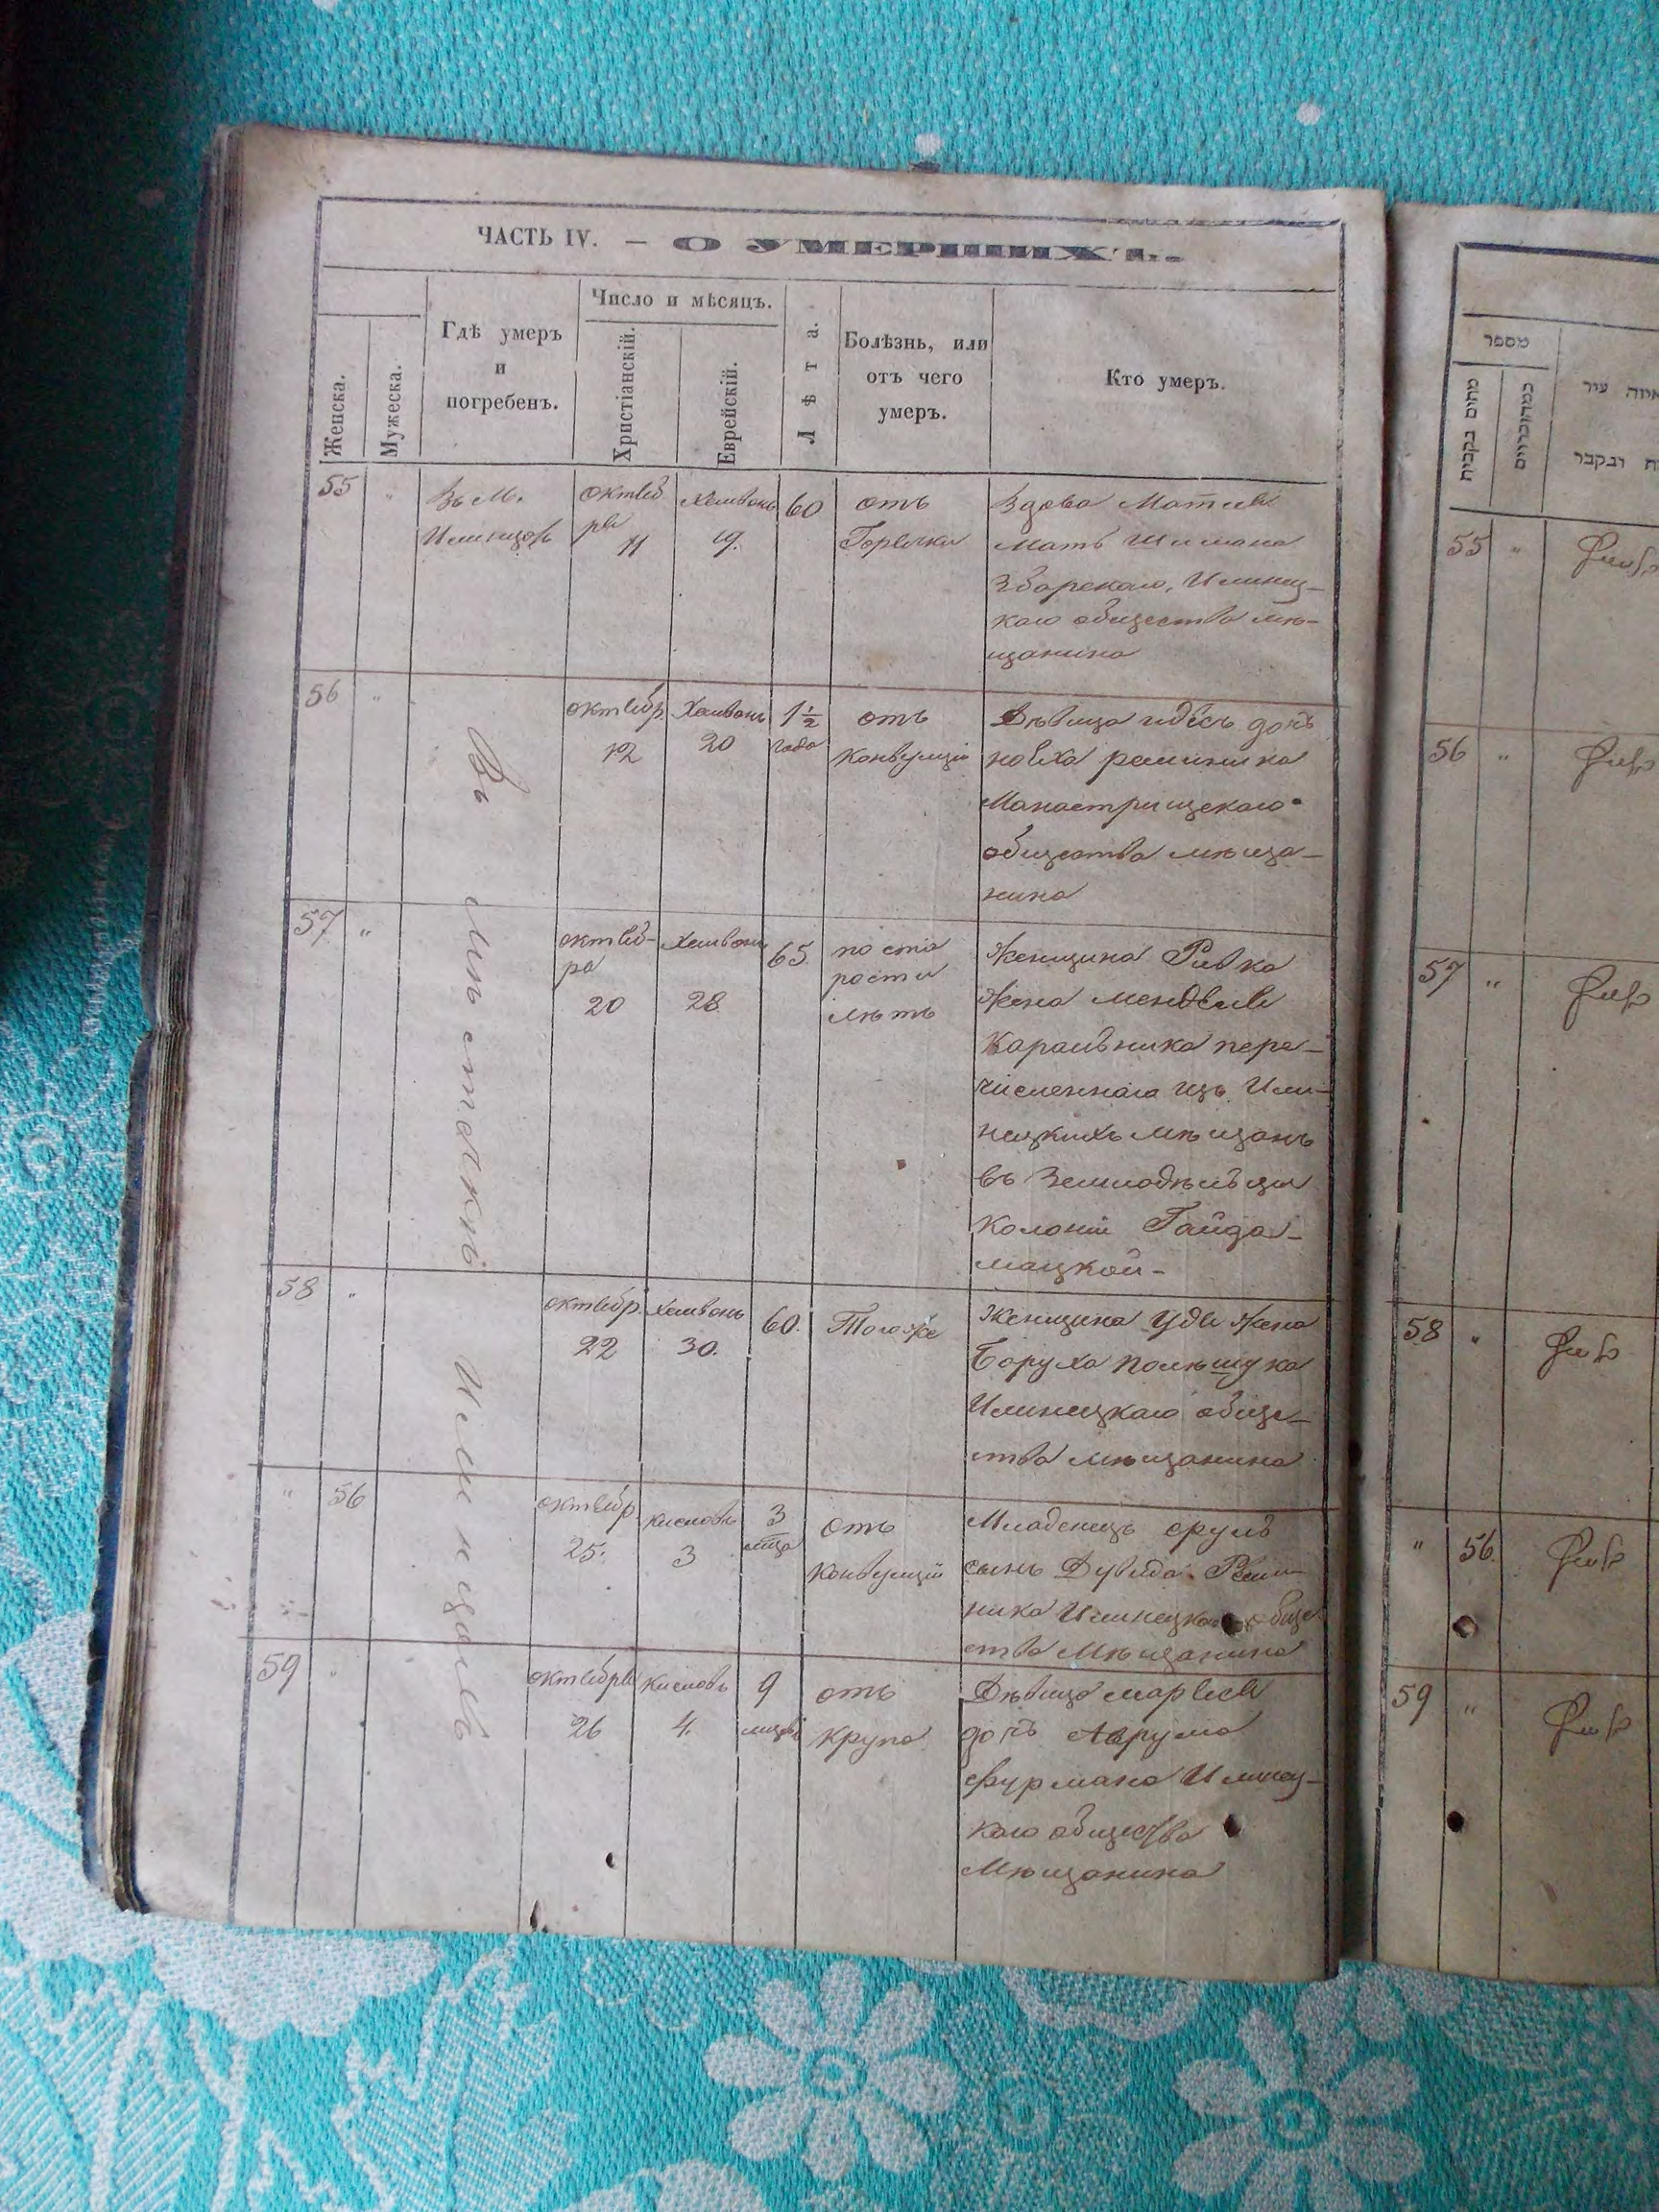 ЧАСТЬ IV. — О УМЕРШИХЪ.
Женска.
Мужеска.
Гдѣ умеръ
и
погребенъ.
Число и мѣсяцъ.
Христіанскій.
Еврейскій.
Лѣта.
Болѣзнь, или
отъ чего
умеръ.
Кто умеръ.
55 "
Въ М.
Илинцовъ
октяб
ря
11
Хешвонъ
19.
60
отъ
Горячки
Вдова Матля
мать Шимана
Збарскаго, Илинец-
каго общества мѣ-
щанина
56 "
октябр
12
Хешвонъ
20
1½
года
отъ
конвулцiи
Дѣвица идесъ дочь
Манастрищскаго
общества мѣща-
нина
57 "
октяб-
ря
20
Хешвонъ
28
65
по ста
рости
лѣтъ
Женщина Ривка
жена менделя
Каральника пере-
численнаго изъ Или-
нецкихъ мѣщанъ
въ Земледѣльцы
Колонiи Гайда-
мацкой-
58 "
октябр
22
Хешвонъ
30.
60.
Тогоже
Женщина Удя жена
Боруха полѣщука
Илинецкаго обще-
ства мѣщанина
" 56
октябр
25.
кисловъ
3
3
мца
отъ
конвулцiи
Младенецъ срулъ
сынъ Дувида Рѣзн-
ника Илинецкаго обще
ства Мѣщанина
59 "
октября
26
Кисловъ
4.
9
мцовъ
отъ
крупа
Дѣвица
дочь Аврума
фурмана Илинец-
каго общества
Мѣщанина
Въ мѣстечкѣ Илинцахъ
מספר
55 "
56 "
57 "
58 "
" 56.
59 "